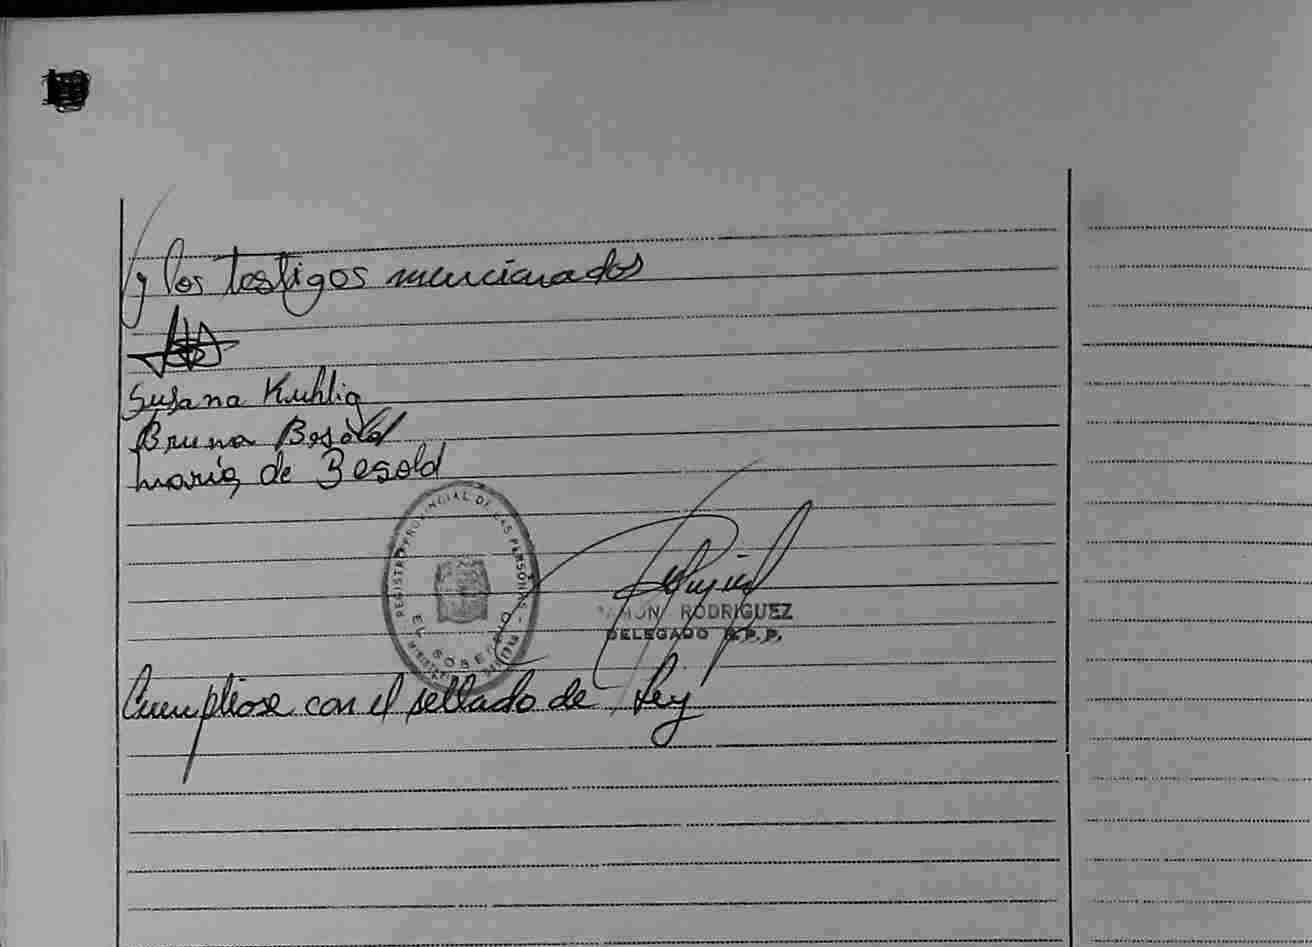 y los testigos mencionados
Susana Kuhlig
Bruno Besold
María de Besold
REGISTRO PROVINCIAL DE LAS PERSONAS -
EL SOBERBIO
RAMON RODRIGUEZ
DELEGADO R.P.P.
Cumpliose con el sellado de Ley